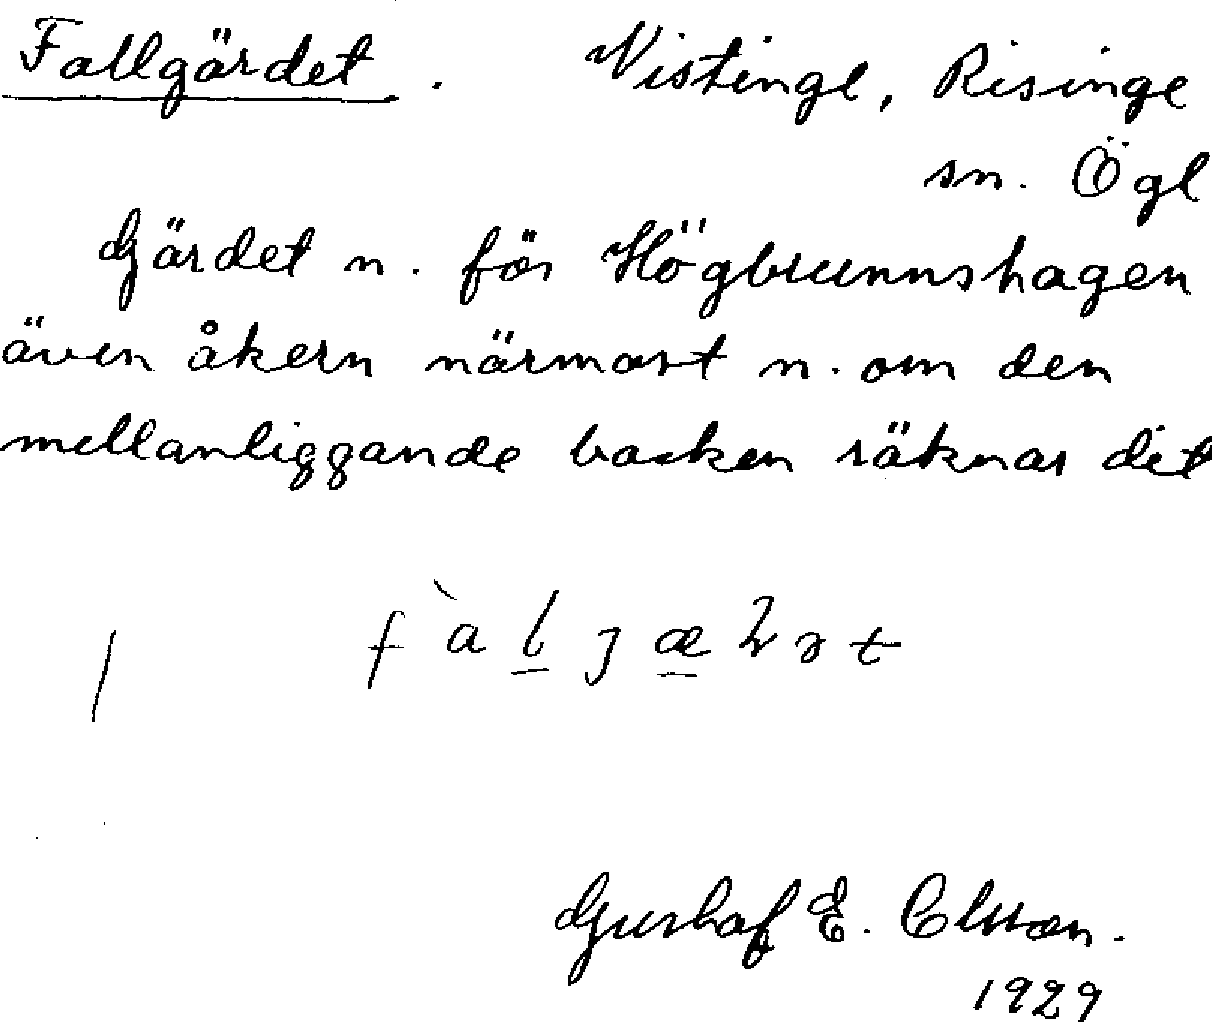 Fallgärdet. Vistinge, Risinge
sn. Ögl
Gärdet n. för Högbrunnshagen
även åkern närmast n. om den
mellanliggande backen räknas dit
Gustaf E. Olsson.
1929